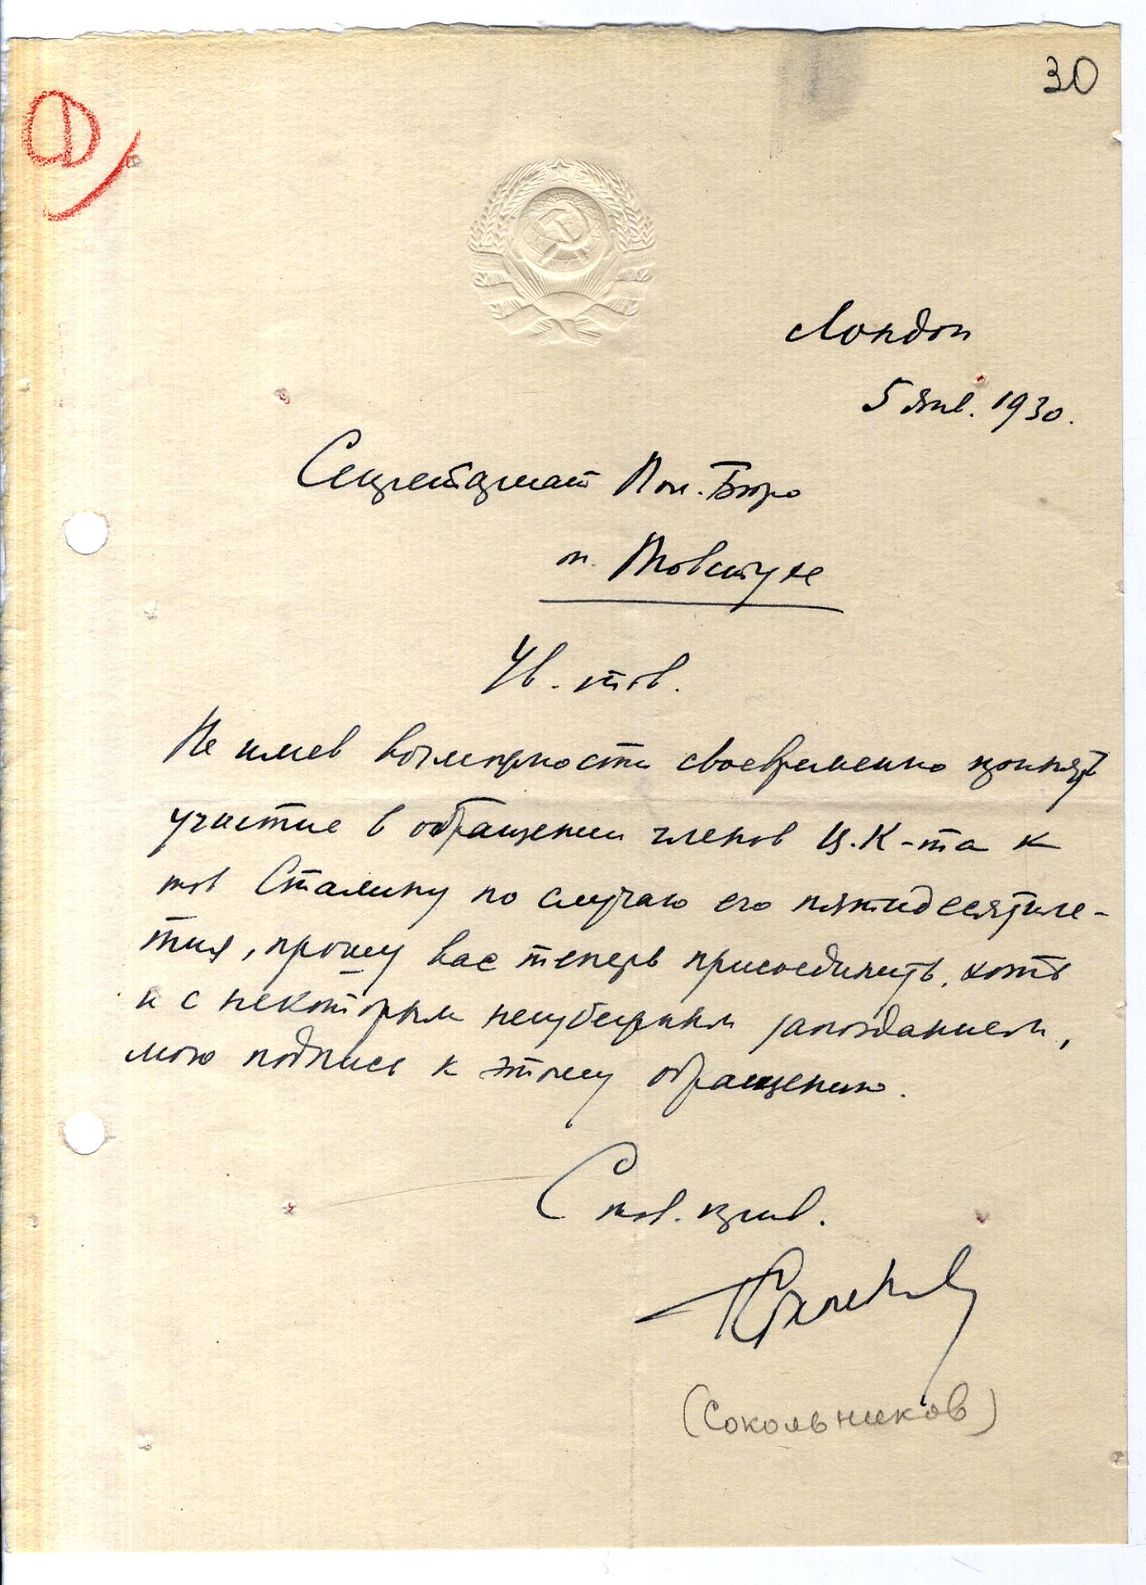 30
Лондон
5 янв. 1930.
Секретариат Пол. Бюро
т. Товстухе
Ув. тов.
Не имев возможности своевременно принять
участие в обращении членов Ц.К-та к
тов Сталину по случаю его пятидесятиле-
тия, прошу вас теперь присоединить, хотя
и с некоторым неизбежным запозданием,
мою подпись к этому обращению.
С тов. прив.
Г Сокольников
(Сокольников)